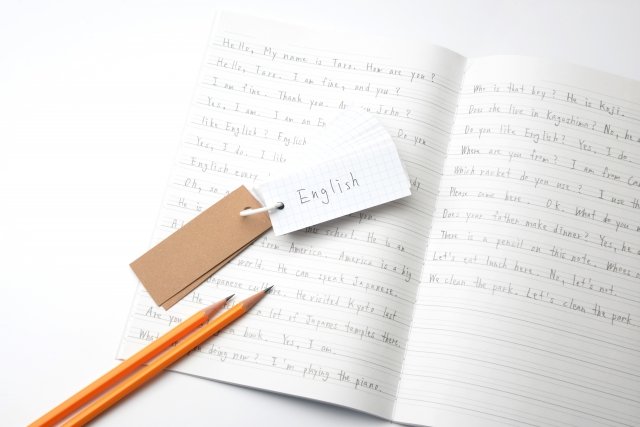 Hello, My name is Taro. How are you?
Hello, Taro. I am fine, and you?
I am fine. Thank you. Are you John?
Yes, I am. I am an Do you
like English? English
Yes, I do. I like
English every
Oh, an
He is
this school. He is an
from America. America is a big
world. He can speak Japanese.
Japanese culture. He visited Kyoto last
He a lot of Japanes temples there.
Are you book. Yes, I am.
What doing now? I'm playing the piano.
English
Who is that boy? He is Koji.
Does he live in Kagoshima? No, he
Do you like English? Yes, I do.
Where are you from? I am from Can
Which racket do you use? I use th
Please come here. OK. What do you
Does your father make dinner? Yes, he
There is a pencil on this note. Whose
Let's eat lunch here. No, let's not.
We clean the park. Let's clean the park